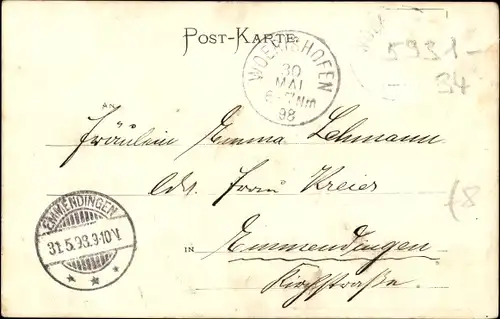 POST-KARTE.
WOERISHOFEN
30
MAI
6-7Nm
98
5931-
34
AN
Fräulein Emma Lehmann
bei Frau Kreier
(8
EMMENDINGEN
31.5.98.9-10V.
* * *
IN
Emmendingen
Kirchstraße.